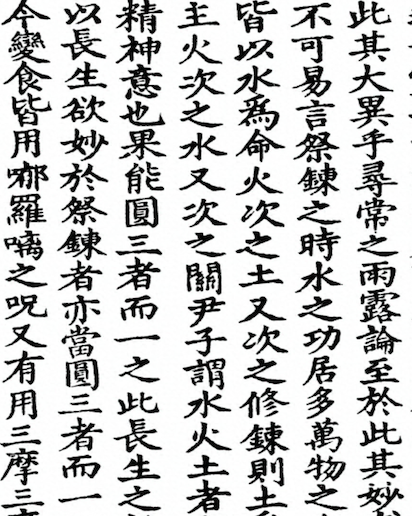 此其大異乎尋常之雨露論至於此其妙
不可易言祭鍊之時水之功居多萬物之
皆以水爲命火次之土又次之修鍊則土
主火次之水又次之關尹子謂水火土者
精神意也果能圓三者而一之此長生之
以長生欲妙於祭鍊者亦當圓三者而一
今變食皆用哪羅之呪又有用三摩三